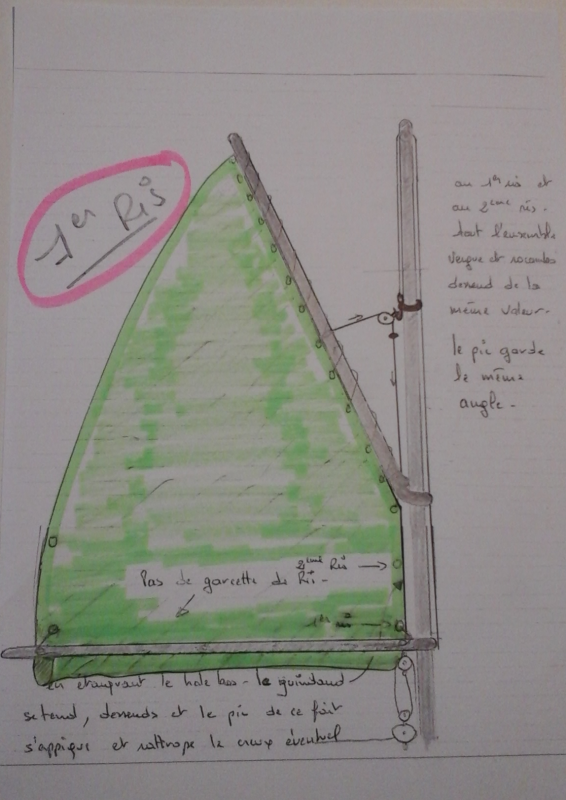 1er RiS
au 1er ris et
au 2ème ris.
tout l'ensemble
vergue et rocambo
descend de la
même valeur.
le pic garde
le même
angle.
2ème Ris
Pas de garcette de Ris.
1er ris
en étarquant le hale bas. le guindant
se tend, descends et le pic de ce fait
s'appique et rattrape le creux éventuel